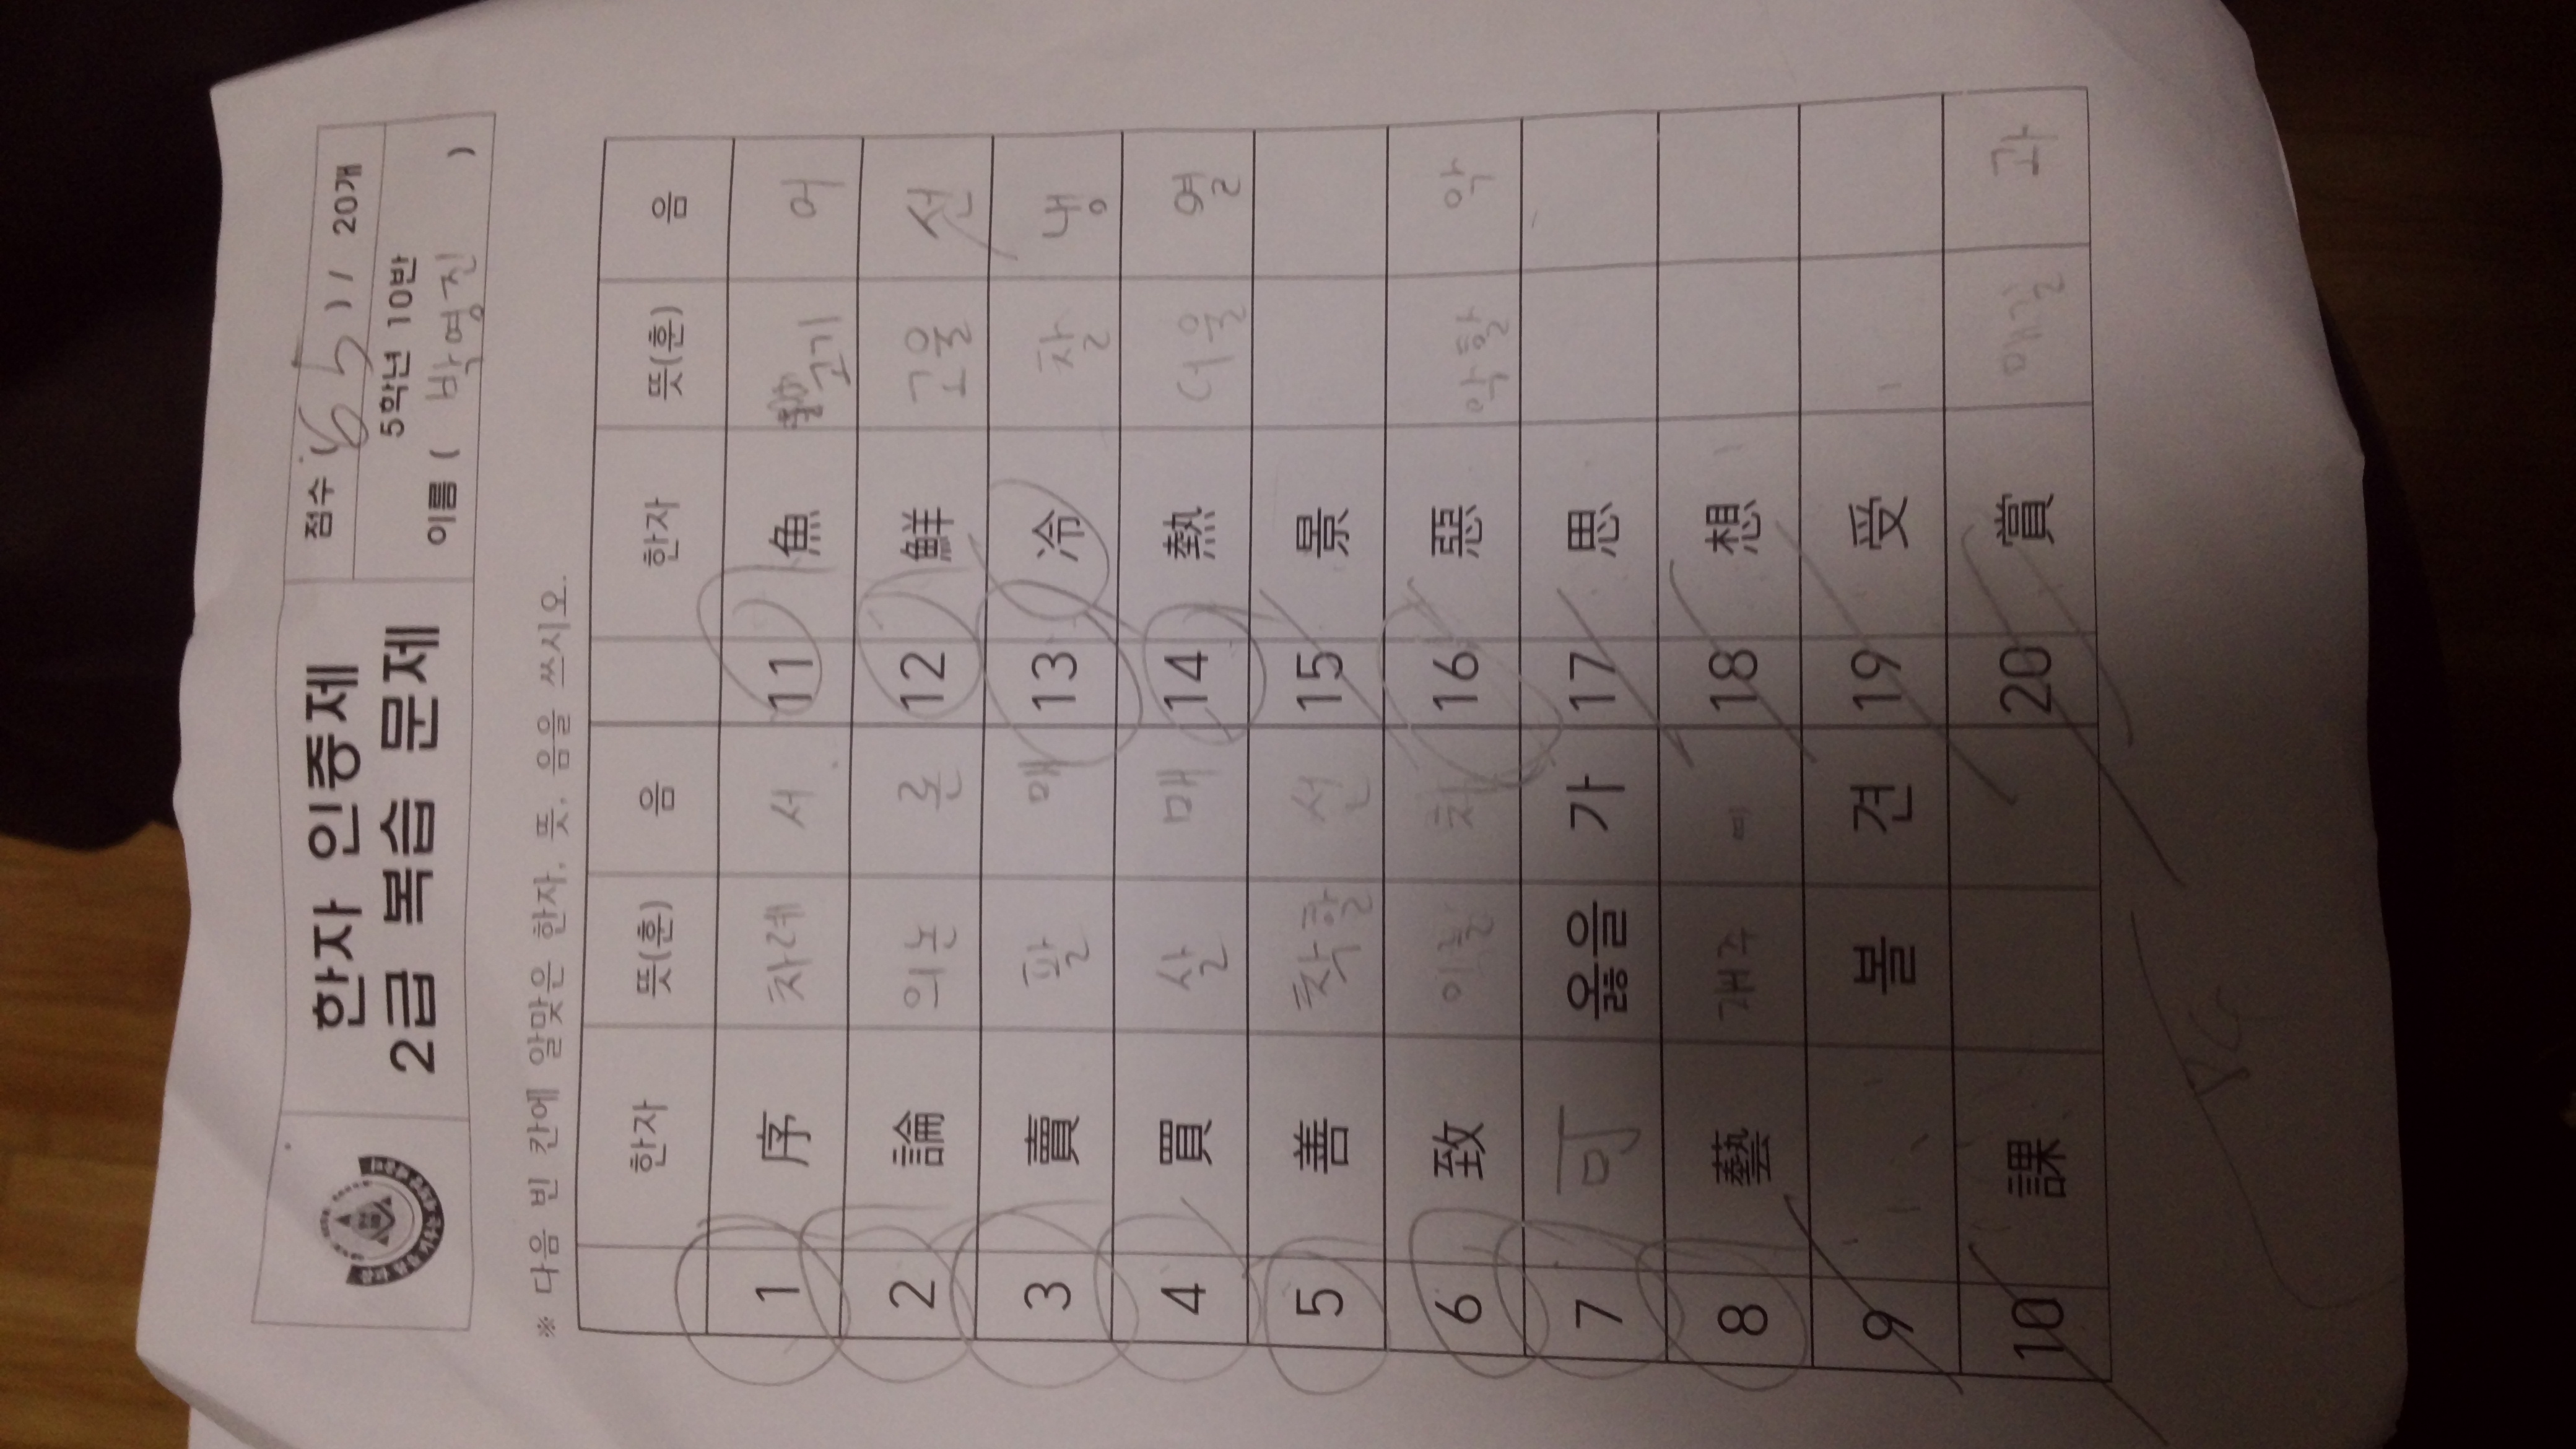 한자 인증제
2급 복습 문제
점수 ( 65 ) / 20개
5학년 10반
이름 ( 박영진 )
※ 다음 빈 칸에 알맞은 한자, 뜻, 음을 쓰시오.
한자 뜻(훈) 음 한자 뜻(훈) 음
1 序 차례 서 11 魚 고기 어
2 論 의논 론 12 鮮 고울 선
3 賣 팔 매 13 冷 찰 냉
4 買 살 매 14 熱 더울 열
5 善 착할 선 15 景
6 致 이룰 치 16 惡 악할 악
7 可 옳을 가 17 思
8 藝 재주 예 18 想
9 볼 견 19 受
10 課 20 賞 매길 과